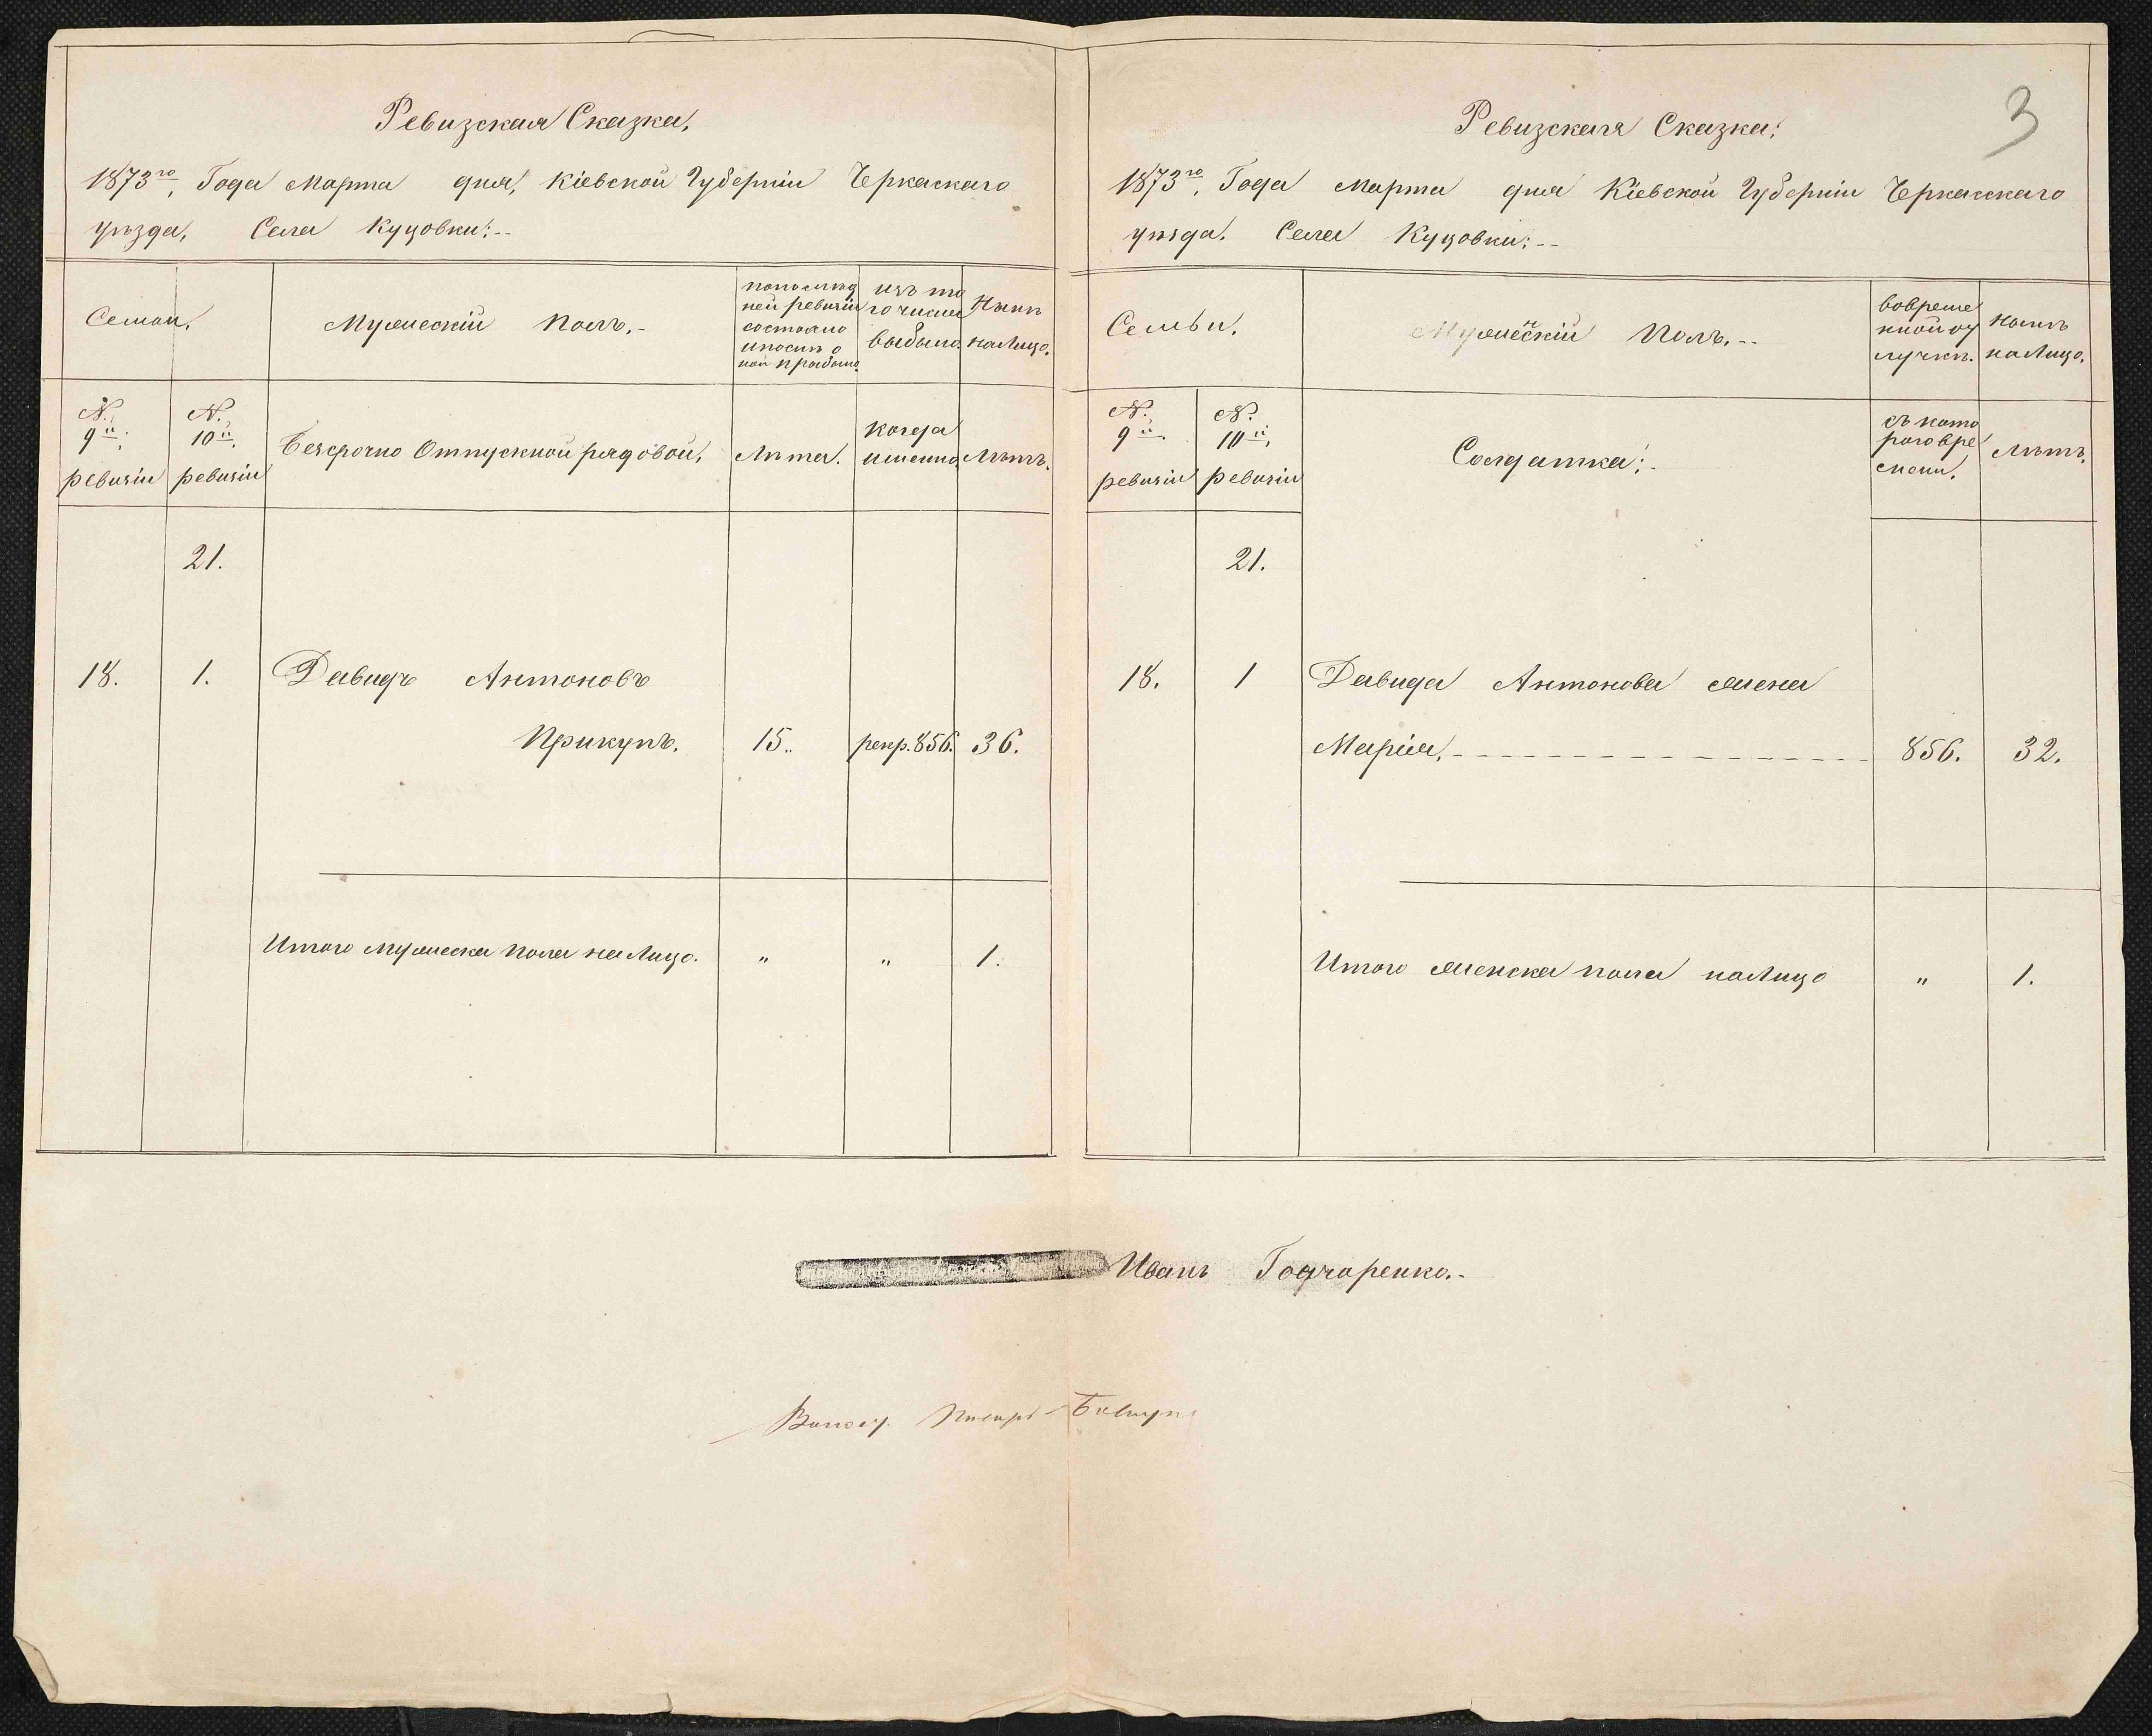 Ревизская Сказка,
1873го, Года Марта дня, Кіевской Губерніи Черкаскаго
уѣзда, Села Куцовки:--
Семьи.
Мужескій полъ.-
попослѣд
ней ревизіи
состояло
ипослѣ о
ной прибыло.
изъ то
го числа
выбыло.
Нынѣ
налицо.
N.
9й.
ревизіи
N.
10й.
ревизіи
Безсрочно Отпускной рядовой,
Лѣта.
когда
именно.
Лѣтъ.
21.
18. 1. Давидъ Антоновъ
Прикупъ. 15.. рекр. 856. 36.
Итого мужеска пола налицо. " " 1.
3
Ревизская Сказка:
1873го, Года Марта дня Кіевской Губерніи Черкасскаго
уѣзда. Села Куцовки:--
Семьи.
Мужескій Полъ.--
вовреме
нной от
лучкѣ.
Нынѣ
налицо.
N.
9й.
ревизіи
N.
10й.
ревизіи
Солдатка:-
съ кото
раго вре
мени.
Лѣтъ.
21.
18. 1 Давида Антонова жена
Марія, 856. 32.
Итого женска пола налицо " 1.
Иванъ Гончаренко.-
Писарь